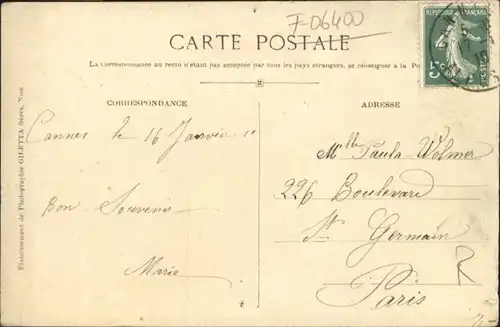 F-06400
CARTE POSTALE
La correspondance au recto n'étant pas acceptée par tous les pays étrangers, se renseigner à la Po
RÉPUBLIQUE FRANÇAISE
5c
CORRESPONDANCE
ADRESSE
Cannes le 16 Janvier 10
Bon Souvenir
Marie
Mlle Paula Wolmer
226 Boulevard
St Germain
Paris
R
Etablissement de Photographie GILETTA frères, Nice